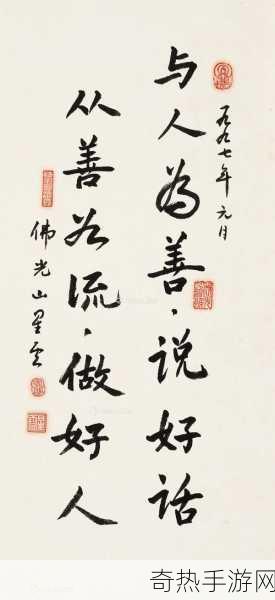 一九九七年元月
与人為善，说好话
从善如流，做好人
佛光山星云
奇热手游网